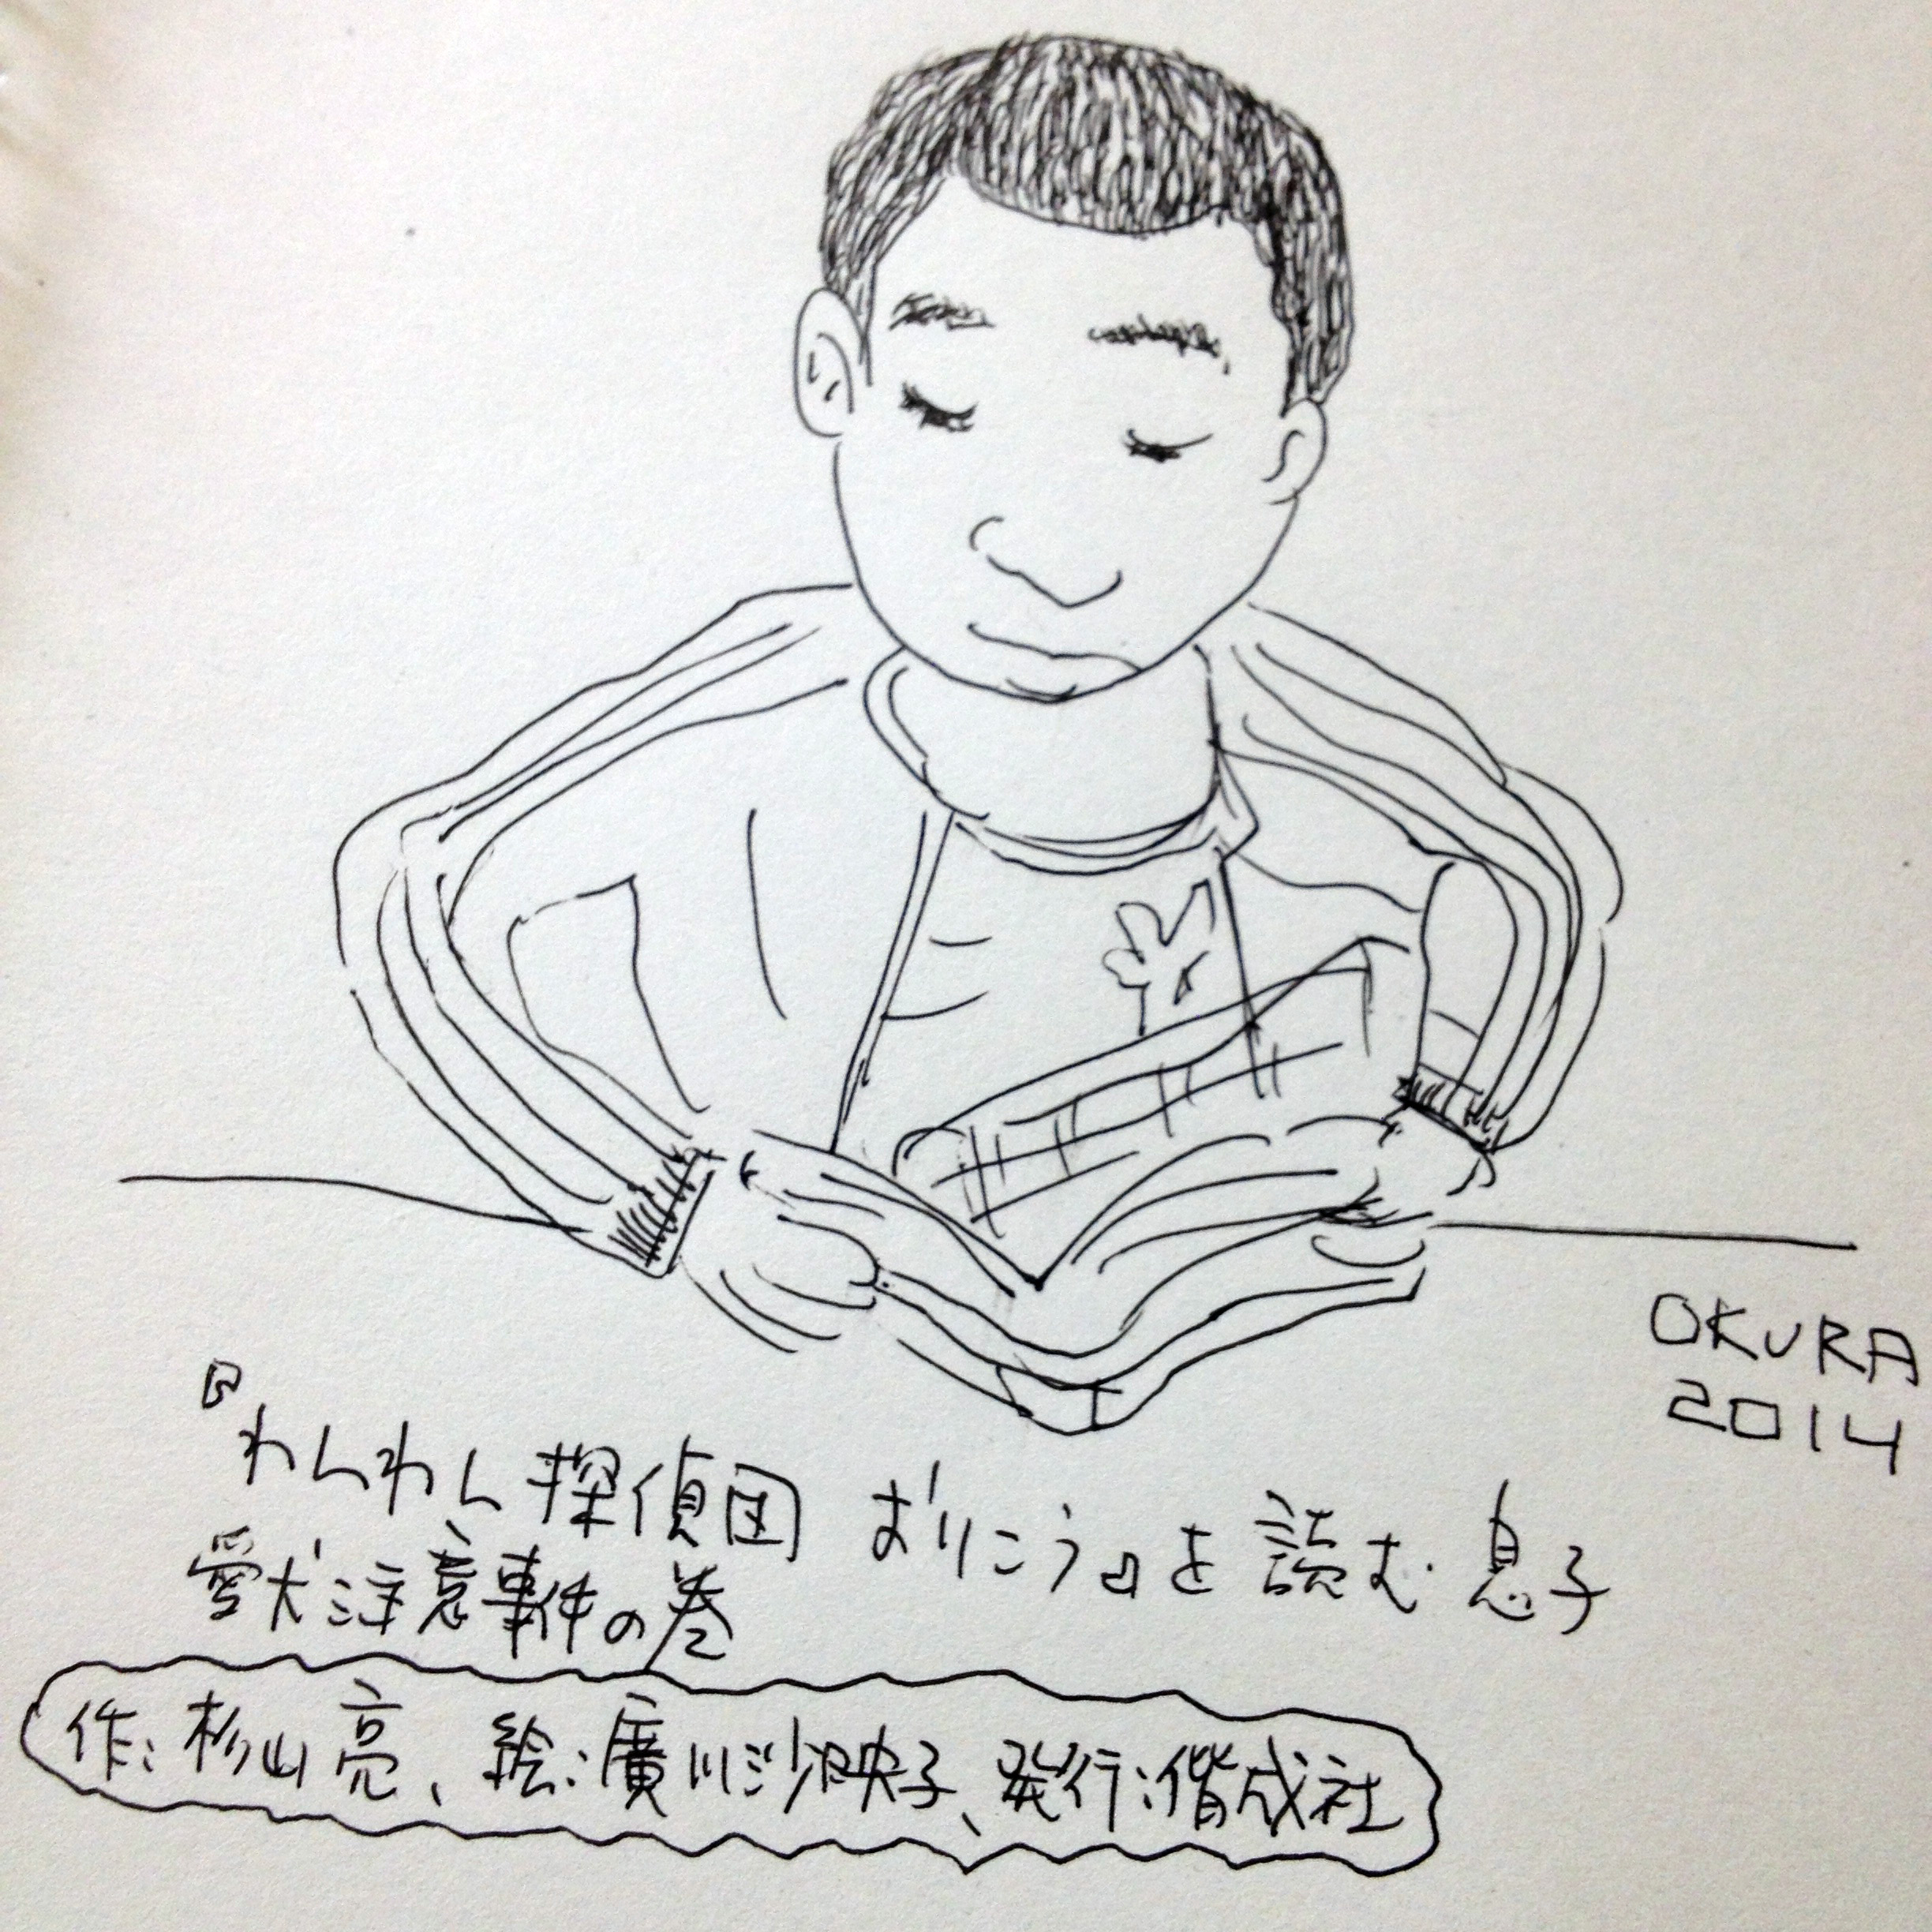 OKURA
2014
『わんわん探偵団 おりこう』を読む息子
愛犬注意事件の巻
作:杉山亮、絵:廣川沙映子、発行:偕成社